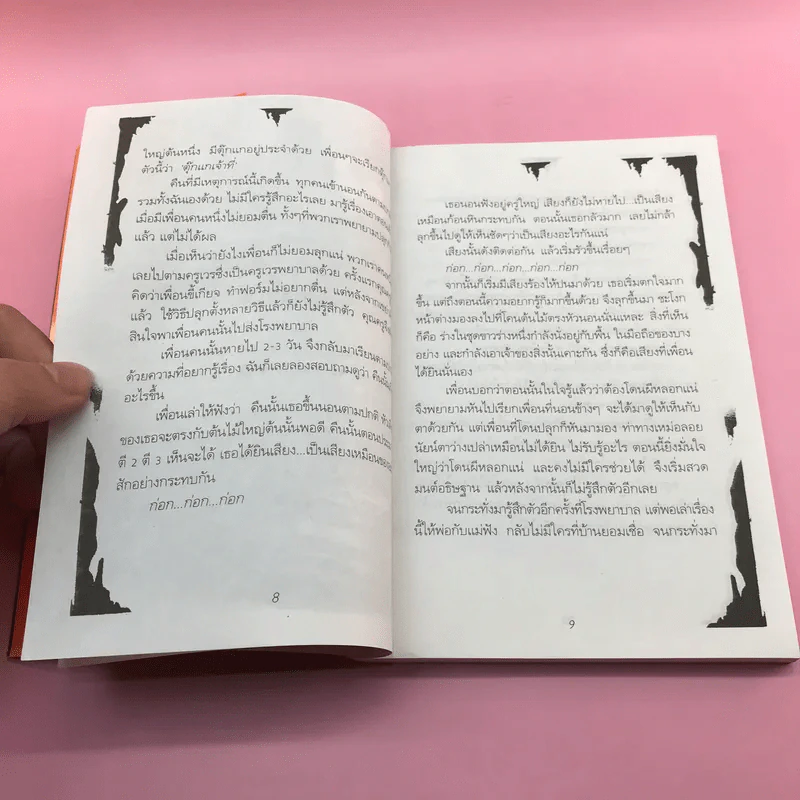 ใหญ่ต้นหนึ่ง มีตุ๊กแกอยู่ประจำด้วย เพื่อนๆจะเรียกตุ๊กแก
ตัวนี้ว่า 'ตุ๊กแกเจ้าที่'
คืนที่มีเหตุการณ์นี้เกิดขึ้น ทุกคนเข้านอนกันตาม
รวมทั้งฉันเองด้วย ไม่มีใครรู้สึกอะไรเลย มารู้เรื่องเอา
เมื่อมีเพื่อนคนหนึ่งไม่ยอมตื่น ทั้งๆที่พวกเราพยายาม
แล้ว แต่ไม่ได้ผล
เมื่อเห็นว่ายังไงเพื่อนก็ไม่ยอมลุกแน่ พวกเรา
เลยไปตามครูเวรซึ่งเป็นครูเวรพยาบาลด้วย ครั้งแรก
คิดว่าเพื่อนขี้เกียจ ทำฟอร์มไม่อยากตื่น แต่หลังจาก
แล้ว ใช้วิธีปลุกตั้งหลายวิธีแล้วก็ยังไม่รู้สึกตัว คุณครู
สินใจพาเพื่อนคนนั้นไปส่งโรงพยาบาล
เพื่อนคนนั้นหายไป 2-3 วัน จึงกลับมาเรียน
ด้วยความที่อยากรู้เรื่อง ฉันก็เลยลองสอบถามดูว่า คืนนั้น
อะไรขึ้น
เพื่อนเล่าให้ฟังว่า คืนนั้นเธอขึ้นนอนตามปกติ
ของเธอจะตรงกับต้นไม้ใหญ่ต้นนั้นพอดี คืนนั้นตอน
ตี 2 ตี 3 เห็นจะได้ เธอได้ยินเสียง...เป็นเสียงเหมือน
สักอย่างกระทบกัน
ก่อก...ก่อก...ก่อก
8
เธอนอนฟังอยู่ครู่ใหญ่ เสียงก็ยังไม่หายไป...เป็นเสียง
เหมือนก้อนหินกระทบกัน ตอนนั้นเธอกลัวมาก เลยไม่กล้า
ลุกขึ้นไปดูให้เห็นชัดๆว่าเป็นเสียงอะไรกันแน่
เสียงนั้นดังติดต่อกัน แล้วเริ่มรัวขึ้นเรื่อยๆ
ก่อก...ก่อก...ก่อก...ก่อก...ก่อก
จากนั้นก็เริ่มมีเสียงร้องไห้ปนมาด้วย เธอเริ่มตกใจมาก
ขึ้น แต่ถึงตอนนี้ความอยากรู้ก็มากขึ้นด้วย จึงลุกขึ้นมา ชะโงก
หน้าต่างมองลงไปที่โคนต้นไม้ตรงหัวนอนนั่นแหละ สิ่งที่เห็น
ก็คือ ร่างในชุดขาวร่างหนึ่งกำลังนั่งอยู่กับพื้น ในมือถือของบาง
อย่าง และกำลังเอาเจ้าของสิ่งนั้นเคาะกัน ซึ่งก็คือเสียงที่เพื่อน
ได้ยินนั่นเอง
เพื่อนบอกว่าตอนนั้นในใจรู้แล้วว่าต้องโดนผีหลอกแน่
จึงพยายามหันไปเรียกเพื่อนที่นอนข้างๆ จะได้มาดูให้เห็นกับ
ตาด้วยกัน แต่เพื่อนที่โดนปลุกก็หันมามอง ท่าทางเหม่อลอย
นัยน์ตาว่างเปล่าเหมือนไม่ได้ยิน ไม่รับรู้อะไร ตอนนี้ยิ่งมั่นใจ
ใหญ่ว่าโดนผีหลอกแน่ และคงไม่มีใครช่วยได้ จึงเริ่มสวด
มนต์อธิษฐาน แล้วหลังจากนั้นก็ไม่รู้สึกตัวอีกเลย
จนกระทั่งมารู้สึกตัวอีกครั้งที่โรงพยาบาล แต่พอเล่าเรื่อง
นี้ให้พ่อกับแม่ฟัง กลับไม่มีใครที่บ้านยอมเชื่อ จนกระทั่งมา
9